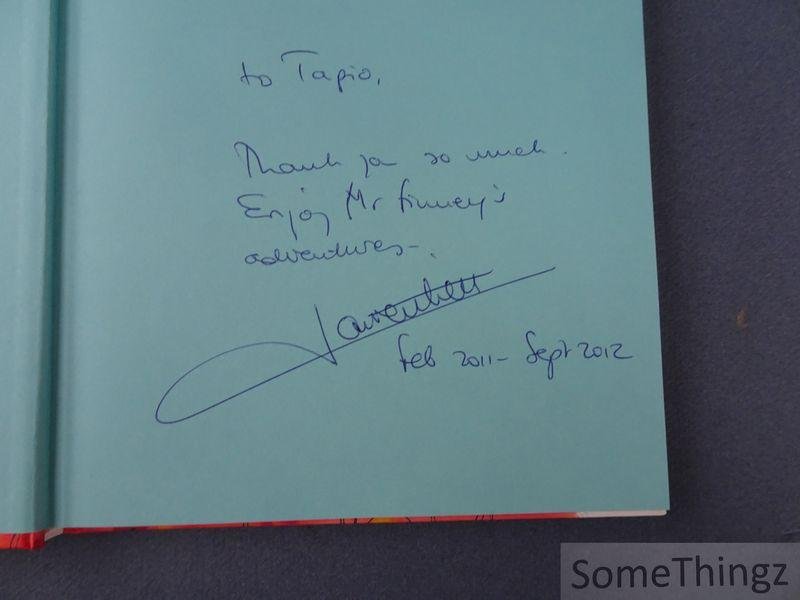 to Tapio,
Thank you so much.
Enjoy Mr Finney's
adventures.
Laurentien
Feb 2011 - Sept 2012
SomeThingz